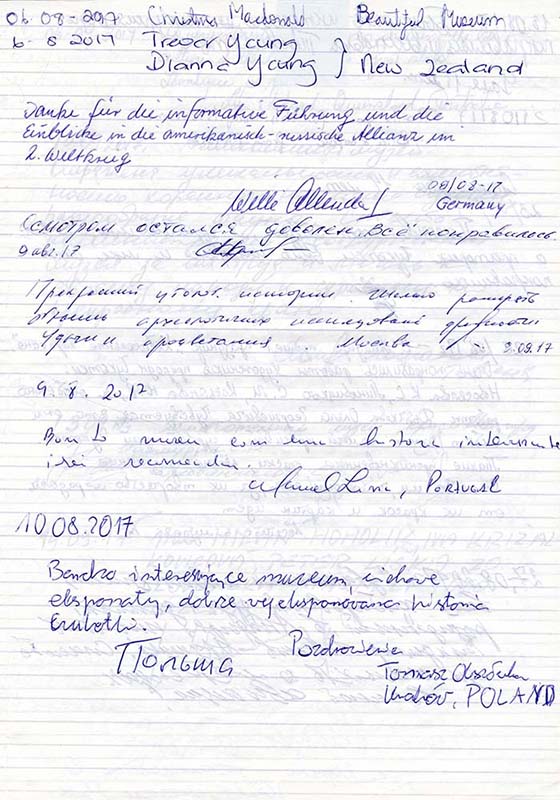 06-08-2017 Christina Macdonald Beautiful Museum
6-8 2017 Trevor Young
Dianna Young } New Zealand
Danke für die informative Führung und die
Einblicke in die amerikanisch-russische Allianz im
2. Weltkrieg
09/08-17
Willi Germany
Осмотром остался доволен. Всё понравилось.
9 авг. 17
Прекрасный истории.
археологических
Удачи и процветания. Москва 9.09.17
9. 8. 2017
Bom museu com uma historia interessante
irei recomendar.
Manuel Lima, PORTUGAL
10.08.2017
Bardzo interesujące museum ciekawe
eksponaty, dobrze wyeksponowana historia
Польша Pozdrowienia
Tomasz
Kraków, POLAND